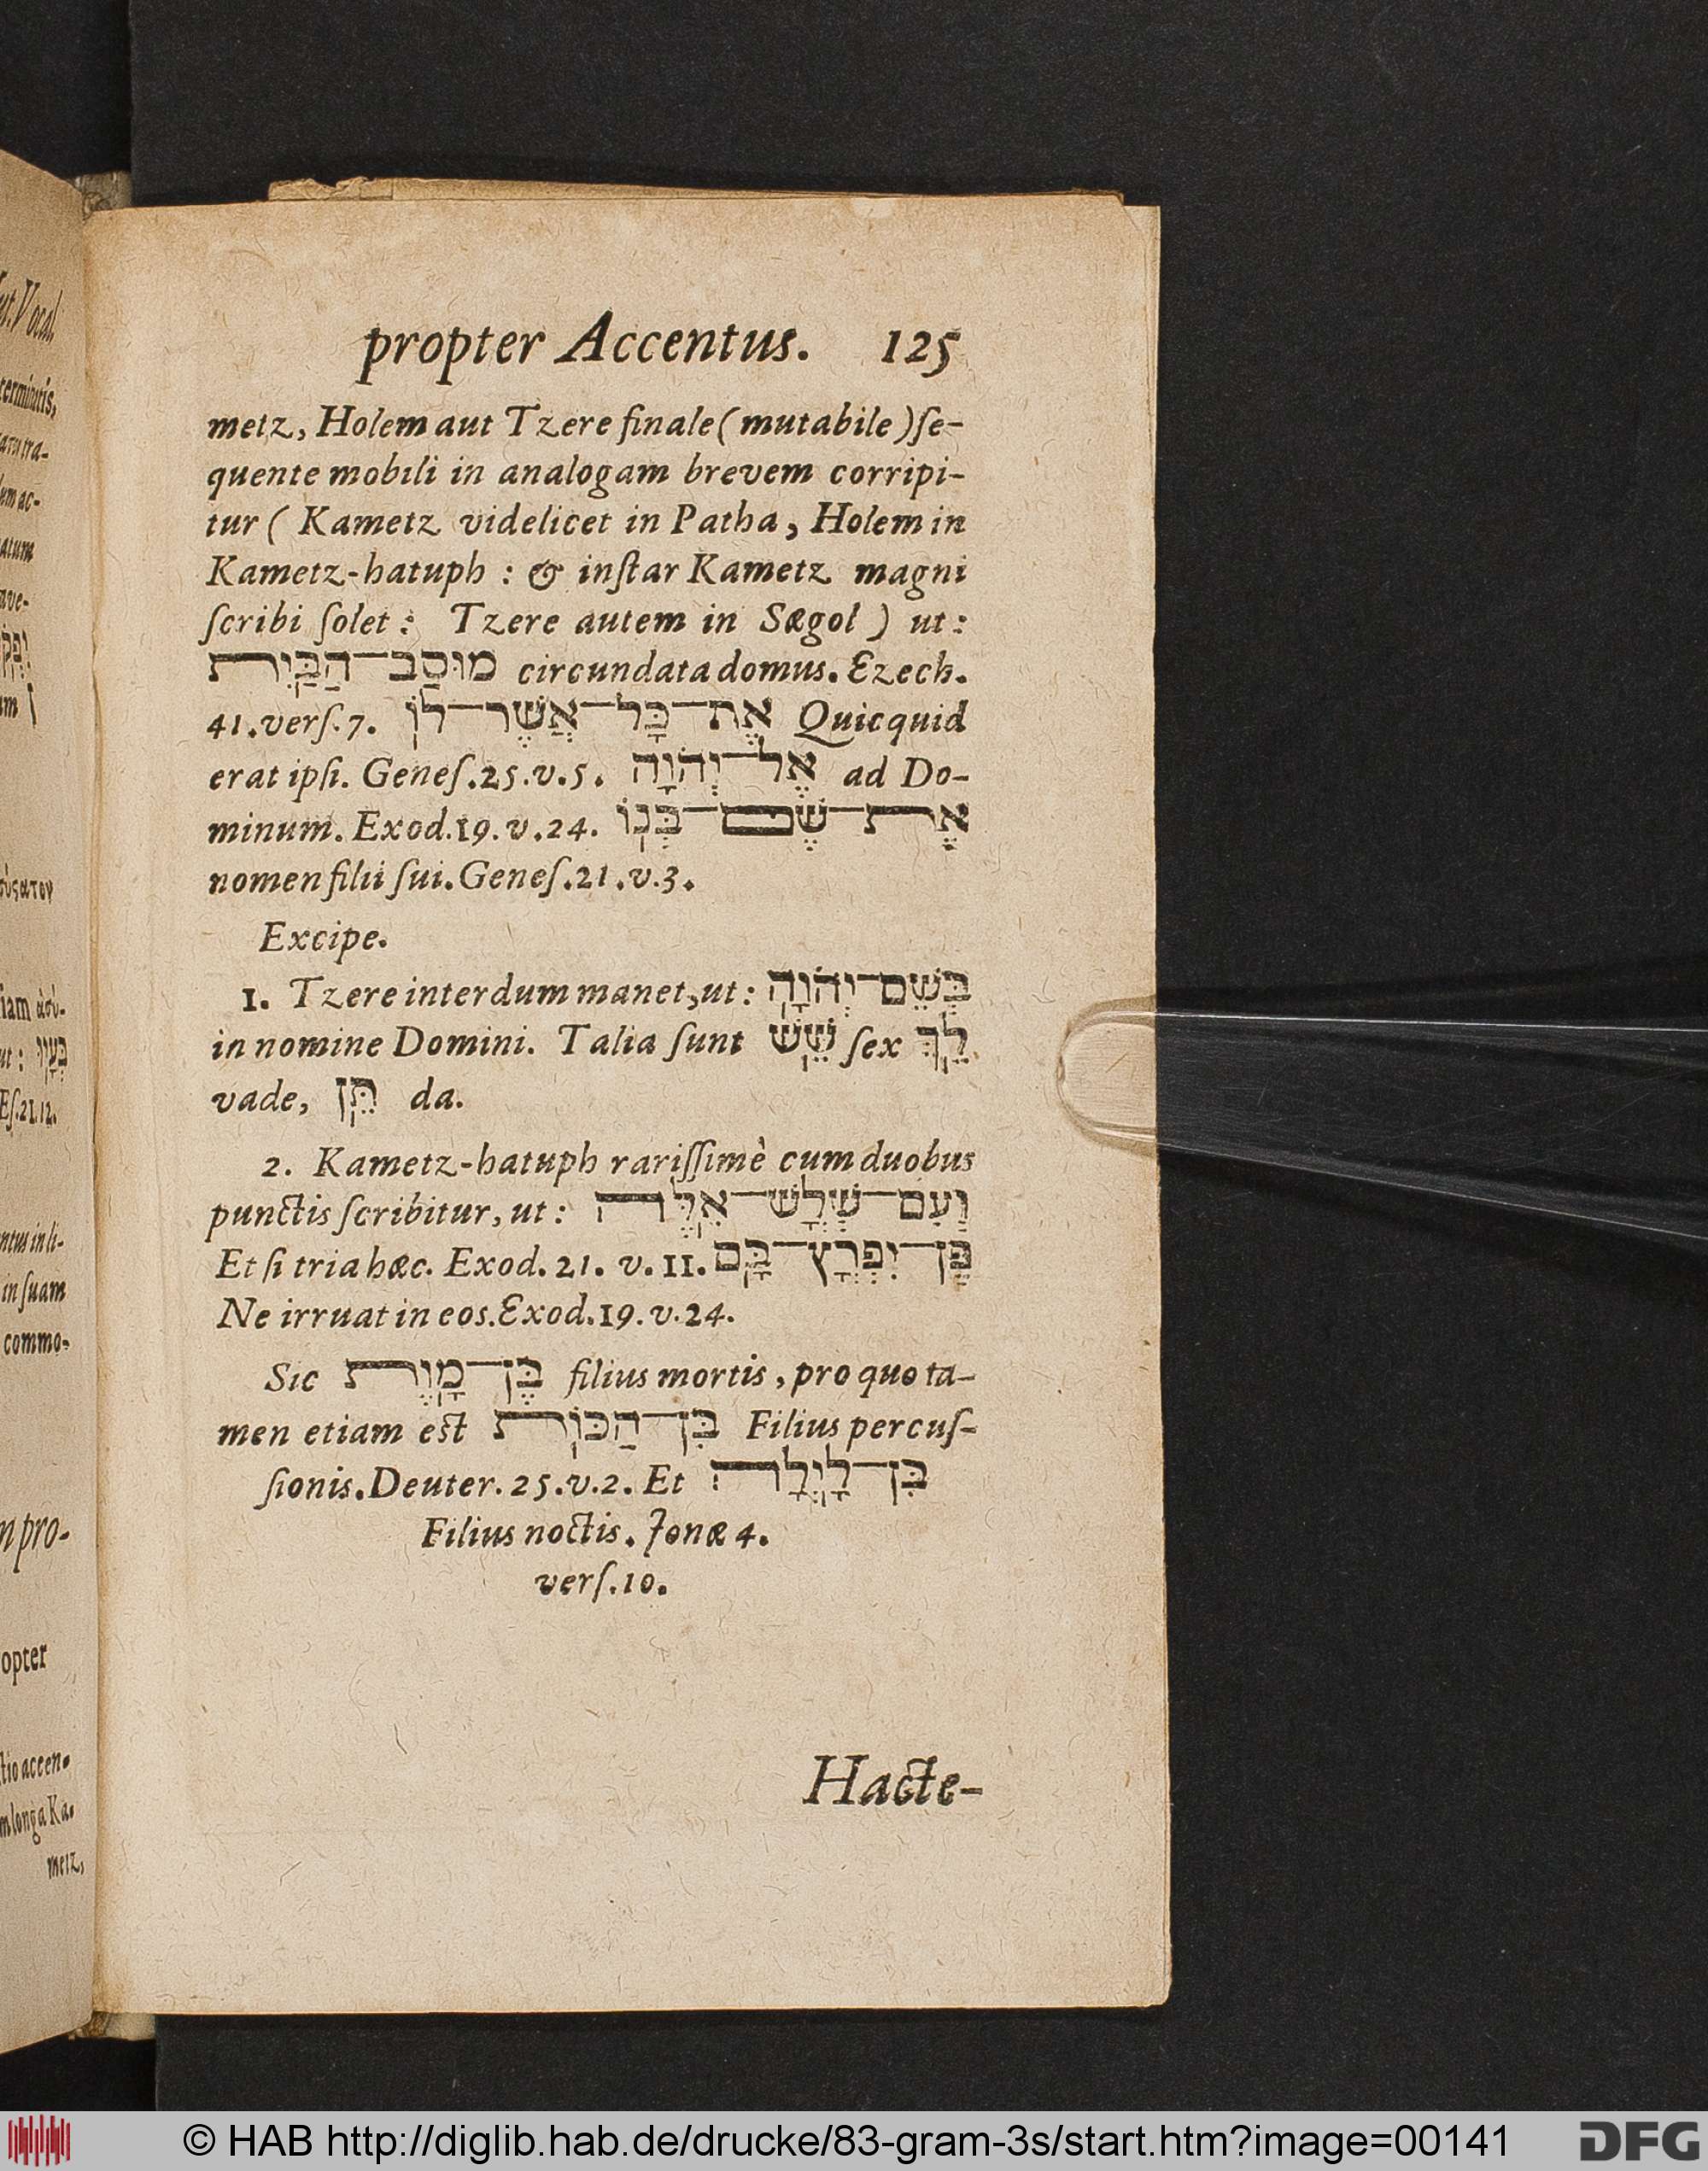 propter Accentus. 125
metz, Holem aut Tzere finale (mutabile) ſe-
quente mobili in analogam brevem corripi-
tur (Kametz videlicet in Patha, Holem in
Kametz-hatuph : & inſtar Kametz magni
ſcribi ſolet : Tzere autem in Sægol) ut :
מוּסַב־הַבַּיִת circundata domus. Ezech.
41. verſ. 7. אֶת־כָּל־אֲשֶׁר־לוֹ Quicquid
erat ipſi. Geneſ. 25. v. 5. אֶל־יְהֹוָה ad Do-
minum. Exod. 19. v. 24. אֶת־שֶׁם־בְּנוֹ
nomen filii ſui. Geneſ. 21. v. 3.
Excipe.
1. Tzere interdum manet, ut : בְּשֵׁם־יְהֹוָה
in nomine Domini. Talia ſunt שֵׁשׁ ſex לֵךְ
vade, תֵּן da.
2. Kametz-hatuph rariſſimè cum duobus
punctis ſcribitur, ut : וְעִם־שְׁלָשׁ־אֵלֶּה
Et ſi tria hæc. Exod. 21. v. 11. פֶּן־יִפְרָץ־בָּם
Ne irruat in eos. Exod. 19. v. 24.
Sic בֶּן־מָוֶת filius mortis, pro quo ta-
men etiam eſt בִּן־הַכּוֹת Filius percuſ-
ſionis. Deuter. 25. v. 2. Et בִּן־לָיְלָה
Filius noctis. Jonæ 4.
verſ. 10.
Hacte-
© HAB http://diglib.hab.de/drucke/83-gram-3s/start.htm?image=00141
DFG